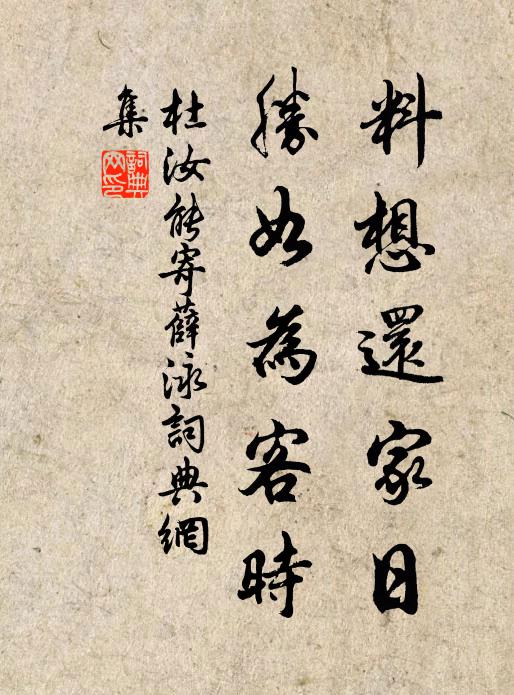 料想還家日
勝如為客時
杜汝能寄薛泳詞典網
集
詞典
网印